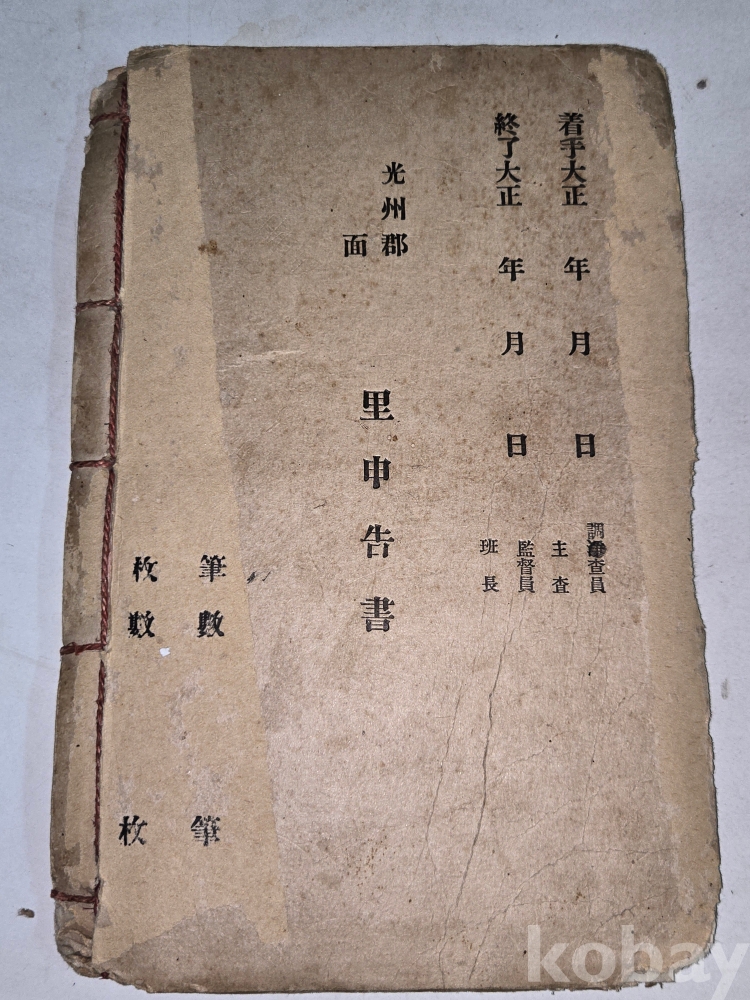 着手大正 年 月 日
終了大正 年 月 日
調査員
主査
監督員
班長
光州郡
面
里申告書
筆數 筆
枚數 枚
kobay